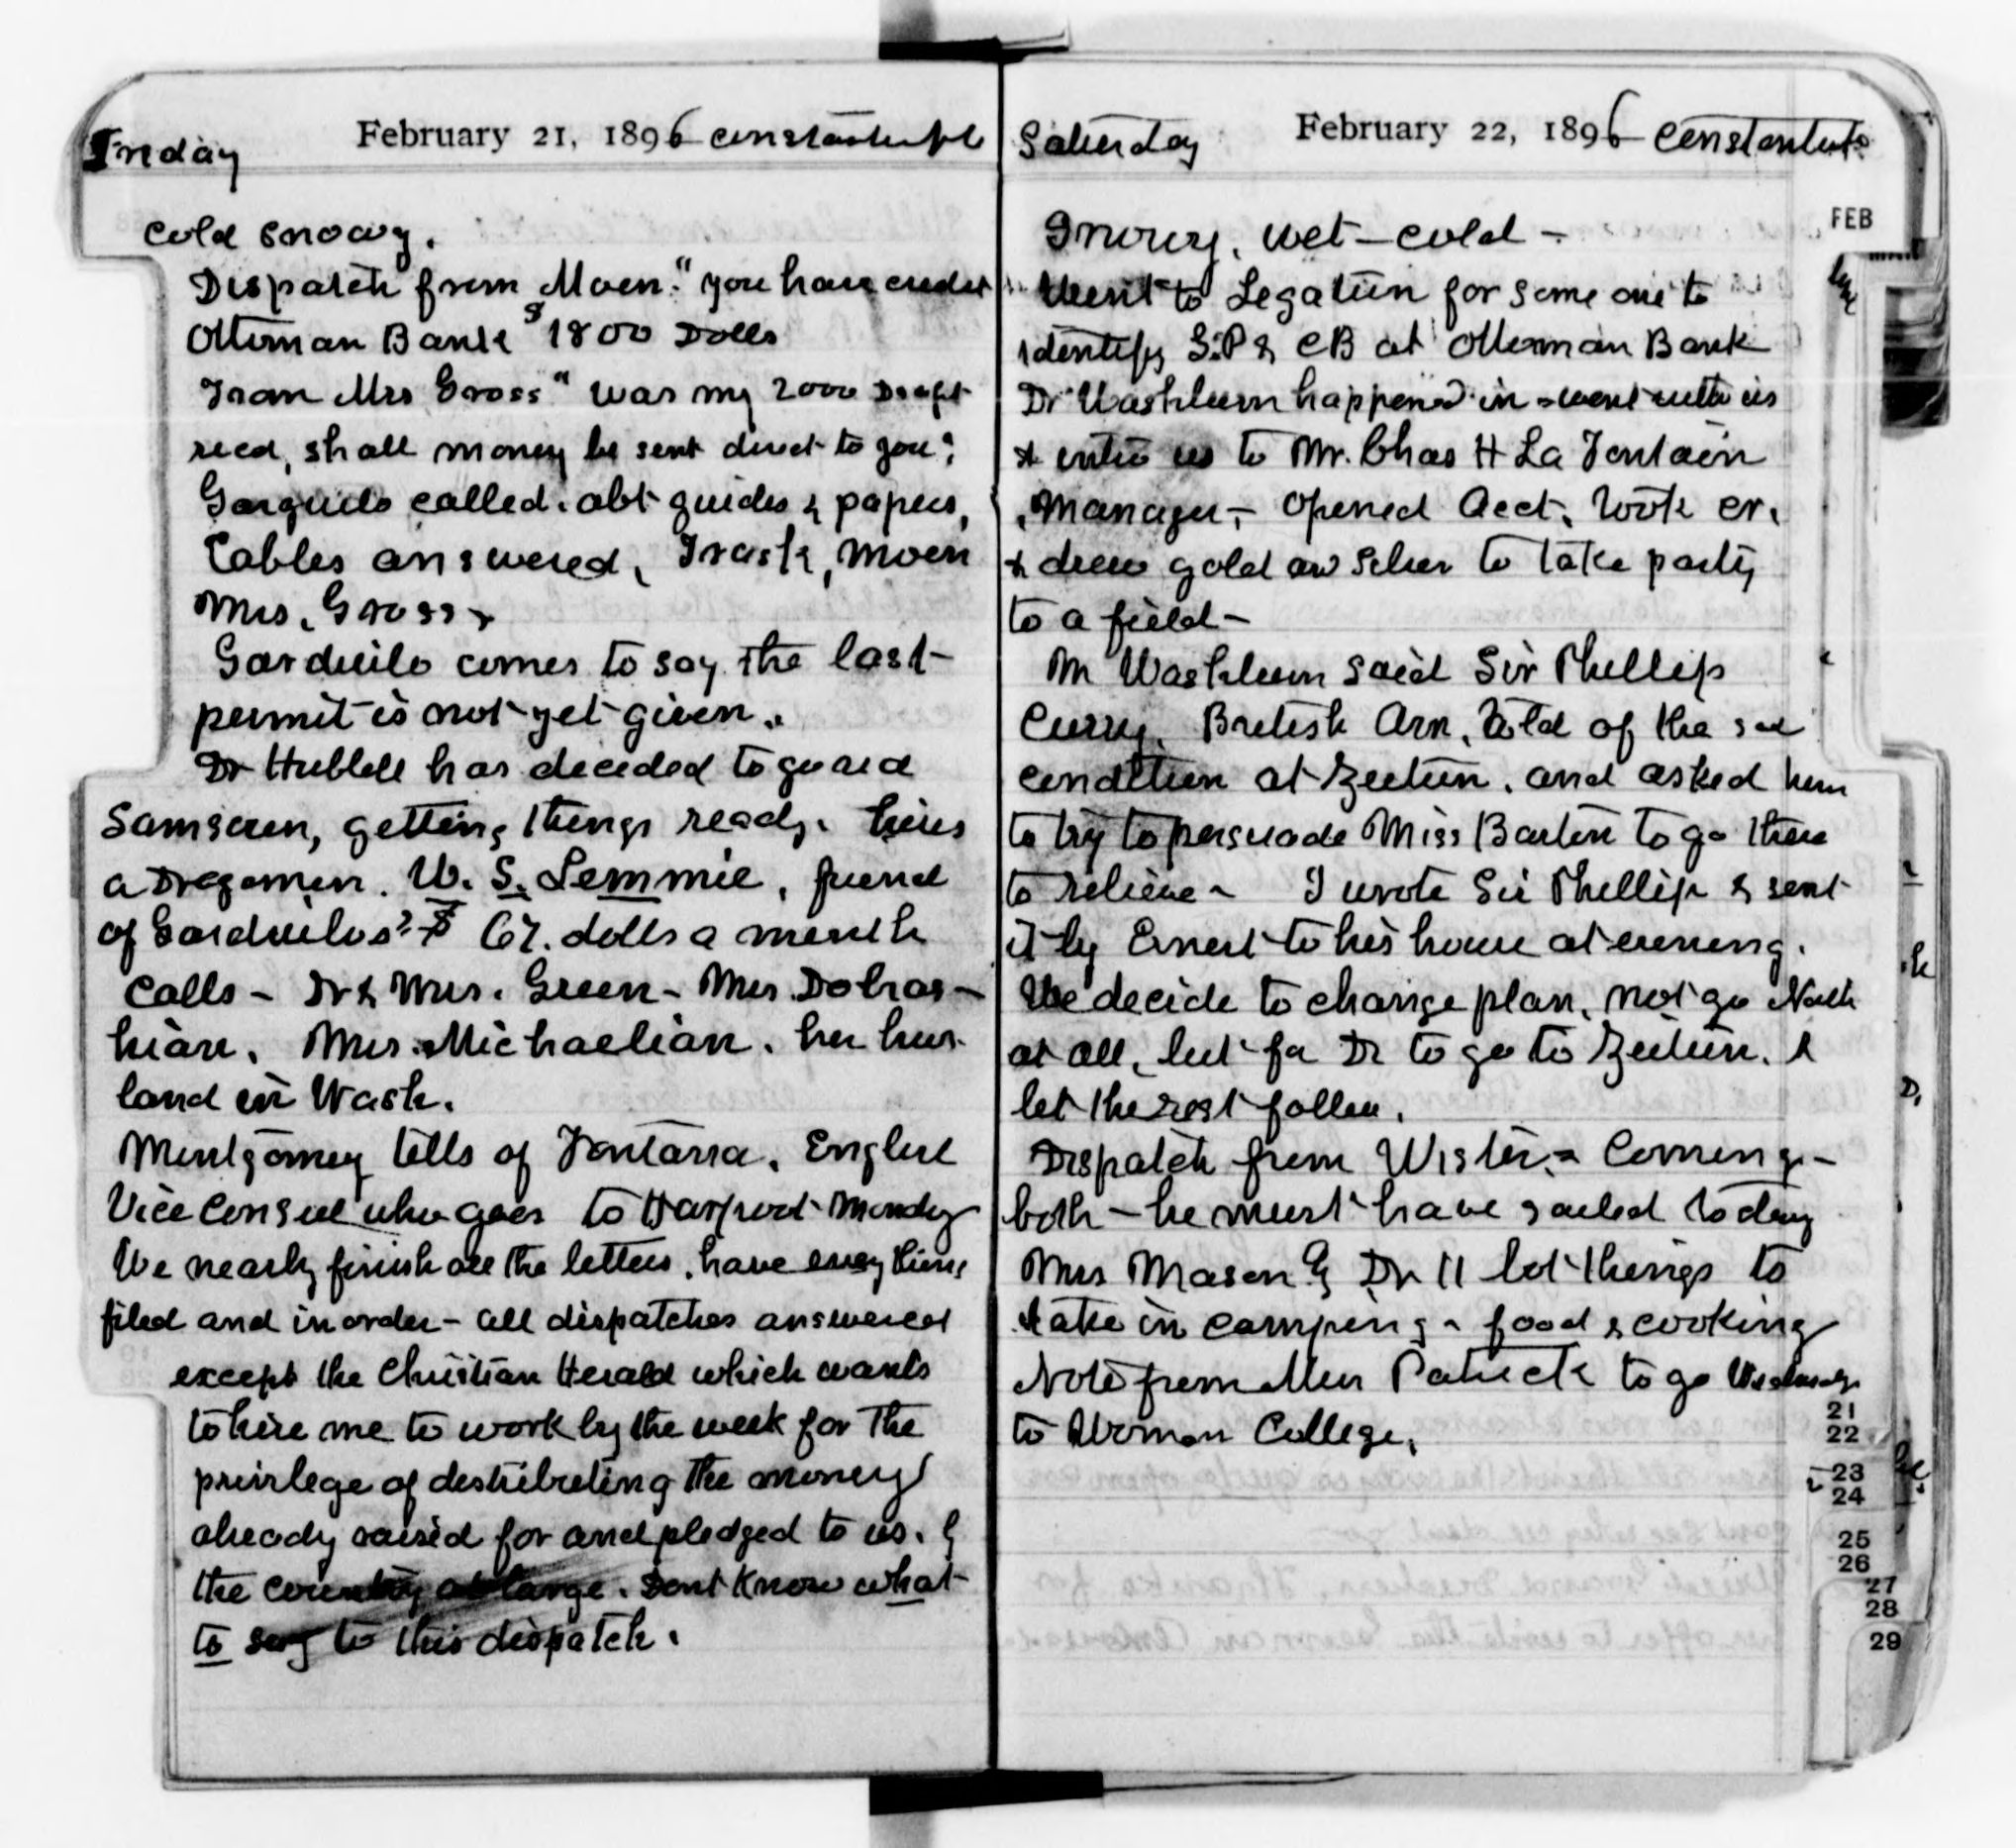 Friday February 21, 1896 Constantinople
Cold snowy.
Dispatch from Moen. "you have credit
Ottoman Bank $1800 Dolls
From Mrs Gross" was my 2000 Draft
recd, shall money be sent direct to you?
called. abt guides & papers,
Cables answered, Trask, Moen
Mrs. Gross.
Garduilo comes to say the last
permit is not yet given.
Dr Hubbell has decided to go via
Samsoun, getting things ready. hires
a Dragoman. W. S. Lemmie, friend
of Garduilos? $ 67. dolls a month
Calls - Dr & Mrs. Green - Mrs.
Mrs. Michaelian. her hus-
band in Wash.
Montgomery tells of Fontana. English
Vice Consul who goes to Harpoot Monday
We nearly finish all the letters. have everything
filed and in order - all dispatches answered
except the Christian Herald which wants
to hire me to work by the week for the
privilege of destributing the money
already raised for and pledged to us. &
the country at large. Dont know what
to say to this dispatch.
Saturday February 22, 1896 Constantinople
Snowy, wet - cold -
Went to Legation for some one to
identify G.P & CB at Ottoman Bank
Dr Washburn happened in - went with us
& intro us to Mr. Chas H La Fontain
Manager, - opened Acct.
& drew gold and Silver to take party
to a field -
Washburn said Sir Phillip
Curry. British Am, told of the sad
condition at Zeitun. and asked him
to try to persuade Miss Barton to go there
to relieve - I wrote Sir Phillip & sent
it by Ernest to his house at evening.
We decide to change plan, not go North
at all, but for Dr to go to Zeitun. &
let the rest follow.
Dispatch from Wistar. - Coming -
both - he must have sailed today
Mrs Mason & Dr H bot things to
take in camping - food & cooking
Note from Miss Patrick to go Wednesday
to Woman College.
FEB
21
22
23
24
25
26
27
28
29